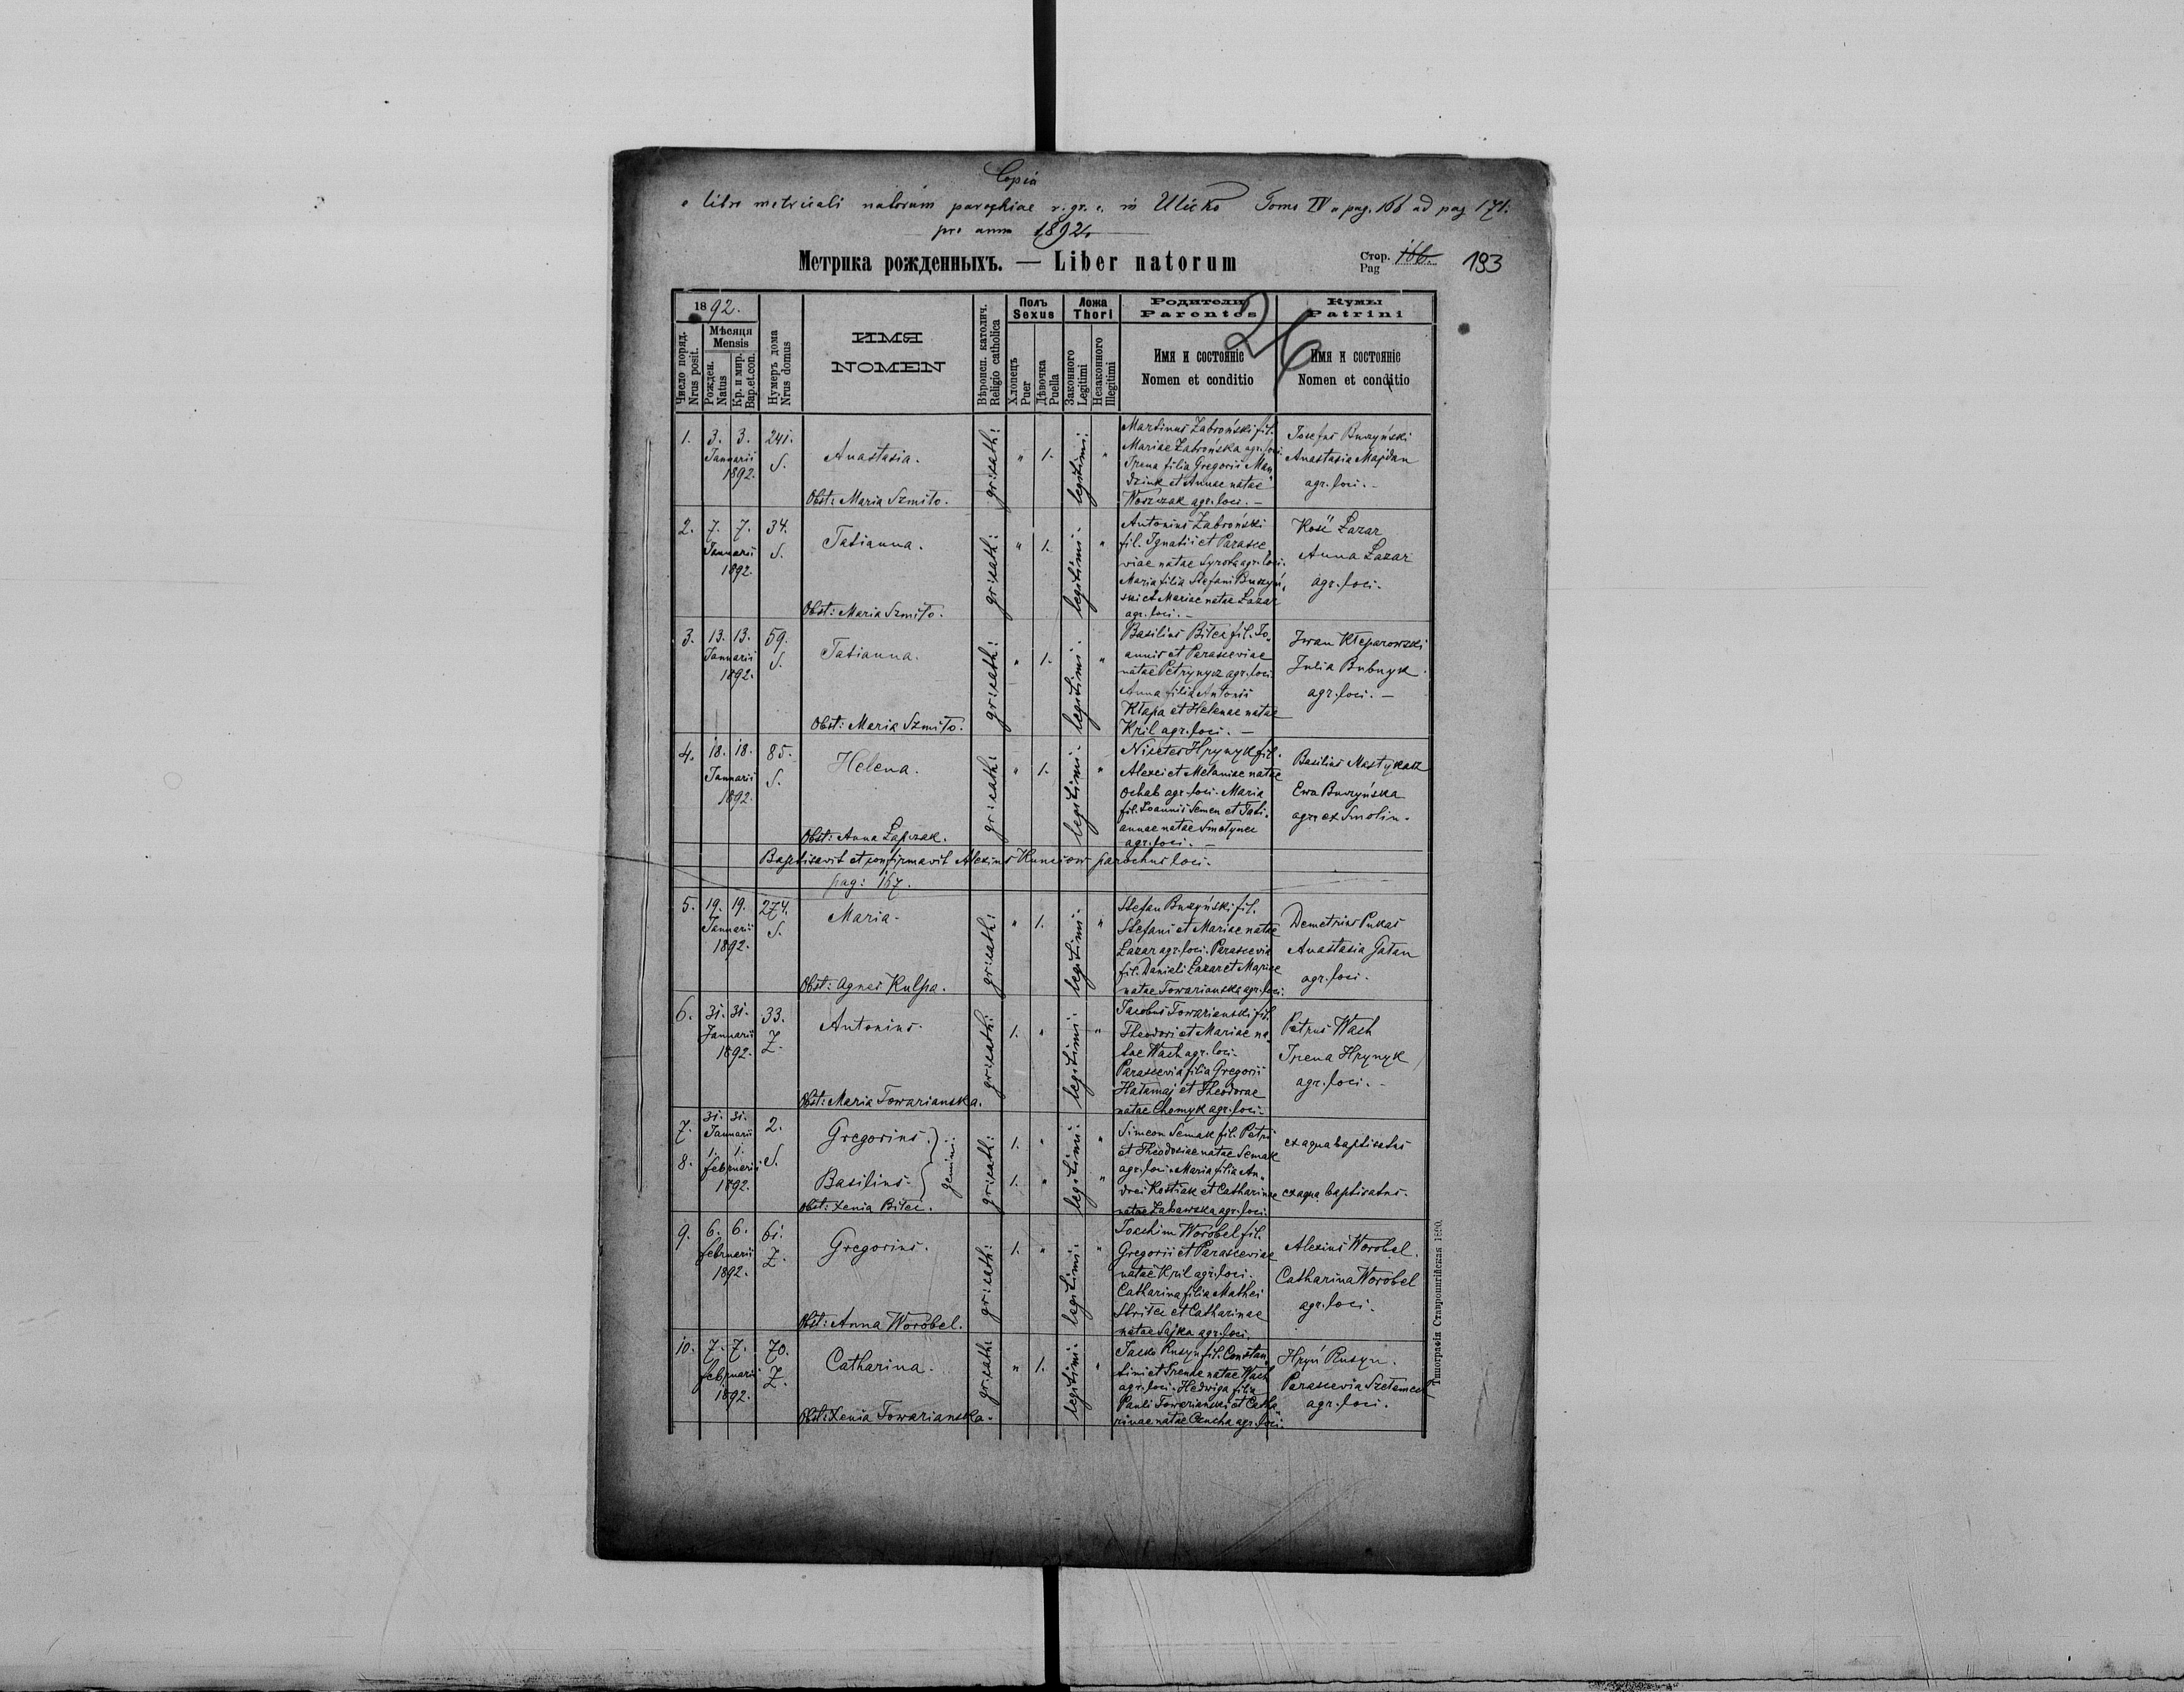 Copia
e libro metricali natorum parochiae r. gr. c. in Ulicko Tomo IV a pag. 166 ad pag 171.
pro anno 1892
Метрика рожденныхъ. — Liber natorum
Стор. Pag 166. 193
26
1892.
Число поряд. Nrus posit.
Мѣсяця Mensis
Рожден. Natus
Кр. и мир. Bap. et. con.
Нумеръ дома Nrus domus
ИМЯ
NOMEN
Вѣроисп. католич. Religio catholica
Полъ Sexus
Хлопецъ Puer
Дѣвочка Puella
Ложа Thori
Законного Legitimi
Незаконного Illegitimi
Родители Parentes
Имя и состоянiе
Nomen et conditio
Кумы Patrini
Имя и состоянiе
Nomen et conditio
1. 3. 3. Januarii 1892. 241. S.
Anastasia.
Obst: Maria Szmiło.
gr: cath: " 1. legitimi. "
Martinus Zabroński fil.
Mariae Zabrońska agr. loci.
Irena filia Gregorii Man„
dziuk et Annae natae
Woszczak agr. loci. —
Josefus Buczyński
Anastasia Majdan
agr. loci. -
2. 7. 7. Januarii 1892. 34. S.
Tatianna.
Obst: Maria Szmiło.
gr: cath: " 1. legitimi. "
Antonius Zabroński
fil. Ignatii et Parasce„
viae natae Syrota agr. loci.
Maria filia Stefani Buczyń„
ski et Mariae natae Łazar
agr. loci. —
Kość Łazar
Anna Łazar
agr. loci.
3. 13. 13. Januarii 1892. 59. S.
Tatianna.
Obst: Maria Szmiło.
gr: cath: " 1. legitimi. "
Basilius Biłec fil. Jo„
annis et Parasceviae
natae Petrynycz agr. loci.
Anna filia Antonii
Kłapa et Helenae natae
Kril agr. loci. —
Iwan Kłeparowski
Julia Bubnyk
agr. loci. —
4. 18. 18. Januarii 1892. 85. S.
Helena.
Obst: Anna Łapczak.
gr: cath: " 1. legitimi. "
Nicetes Hrynyk fil.
Alexei et Melaniae natae
Ochab agr. loci. Maria
fil. Joannis Semen et Tati„
annae natae Smołynec
agr. loci. —
Basilius Mastykasz
Ewa Buczyńska
agr. ex Smolin.
Baptisavit et confirmavit Alexius Kunciow parochus loci.
pag: 167.
5. 19. 19. Januarii 1892. 274. S.
Maria.
Obst: Agnes Kulpa.
gr: cath: " 1. legitimi. "
Stefan Buczyński fil.
Stefani et Mariae natae
Łazar agr. loci. Parascevia
fil. Danieli Łazar et Mariae
natae Towarianska agr. loci.
Demetrius Pukas
Anastasia Gatan
agr. loci.
6. 31. 31. Januarii 1892. 33. Z.
Antonius.
Obst: Maria Towarianska.
gr: cath: 1. " legitimi. "
Jacobus Towarianski fil.
Theodori et Mariae na„
tae Wach agr. loci.
Parascevia filia Gregorii
Hałamaj et Theodorae
natae Chomyk agr. loci.
Petrus Wach
Irena Hrynyk
agr. loci. -
7. 31. 31. Januarii
8. 1. 1. februarii 1892. 2. S.
Gregorius.
Basilius.
gemini
Obst: Xenia Biłec.
gr: cath: 1. " legitimi. "
1. " "
Simeon Semak fil. Petri
et Theodosiae natae Semak
agr. loci. Maria filia An„
drei Kostiak et Catharinae
natae Zabawska agr. loci.
ex aqua baptisatus
ex aqua baptisatus.
9. 6. 6. februarii 1892. 61. Z.
Gregorius.
Obst: Anna Worobel.
gr: cath: 1. " legitimi. "
Joachim Worobel fil.
Gregorii et Parasceviae
natae Kril agr. loci.
Catharina filia Mathei
Strilec et Catharinae
natae Sajka agr. loci.
Alexius Worobel.
Catharina Worobel
agr. loci.
10. 7. 7. februarii 1892. 70. Z.
Catharina.
Obst: Xenia Towarianska.
gr: cath: " 1. legitimi. "
Jacko Rusyn fil. Constan„
tini et Irenae natae Wach
agr. loci. Hedwiga filia
Pauli Towarianski et Catha„
rinae natae Cencha agr. loci.
Hryń Rusyn.
Parascevia
agr. loci.
Типографiя Ставропигiйская 1890.